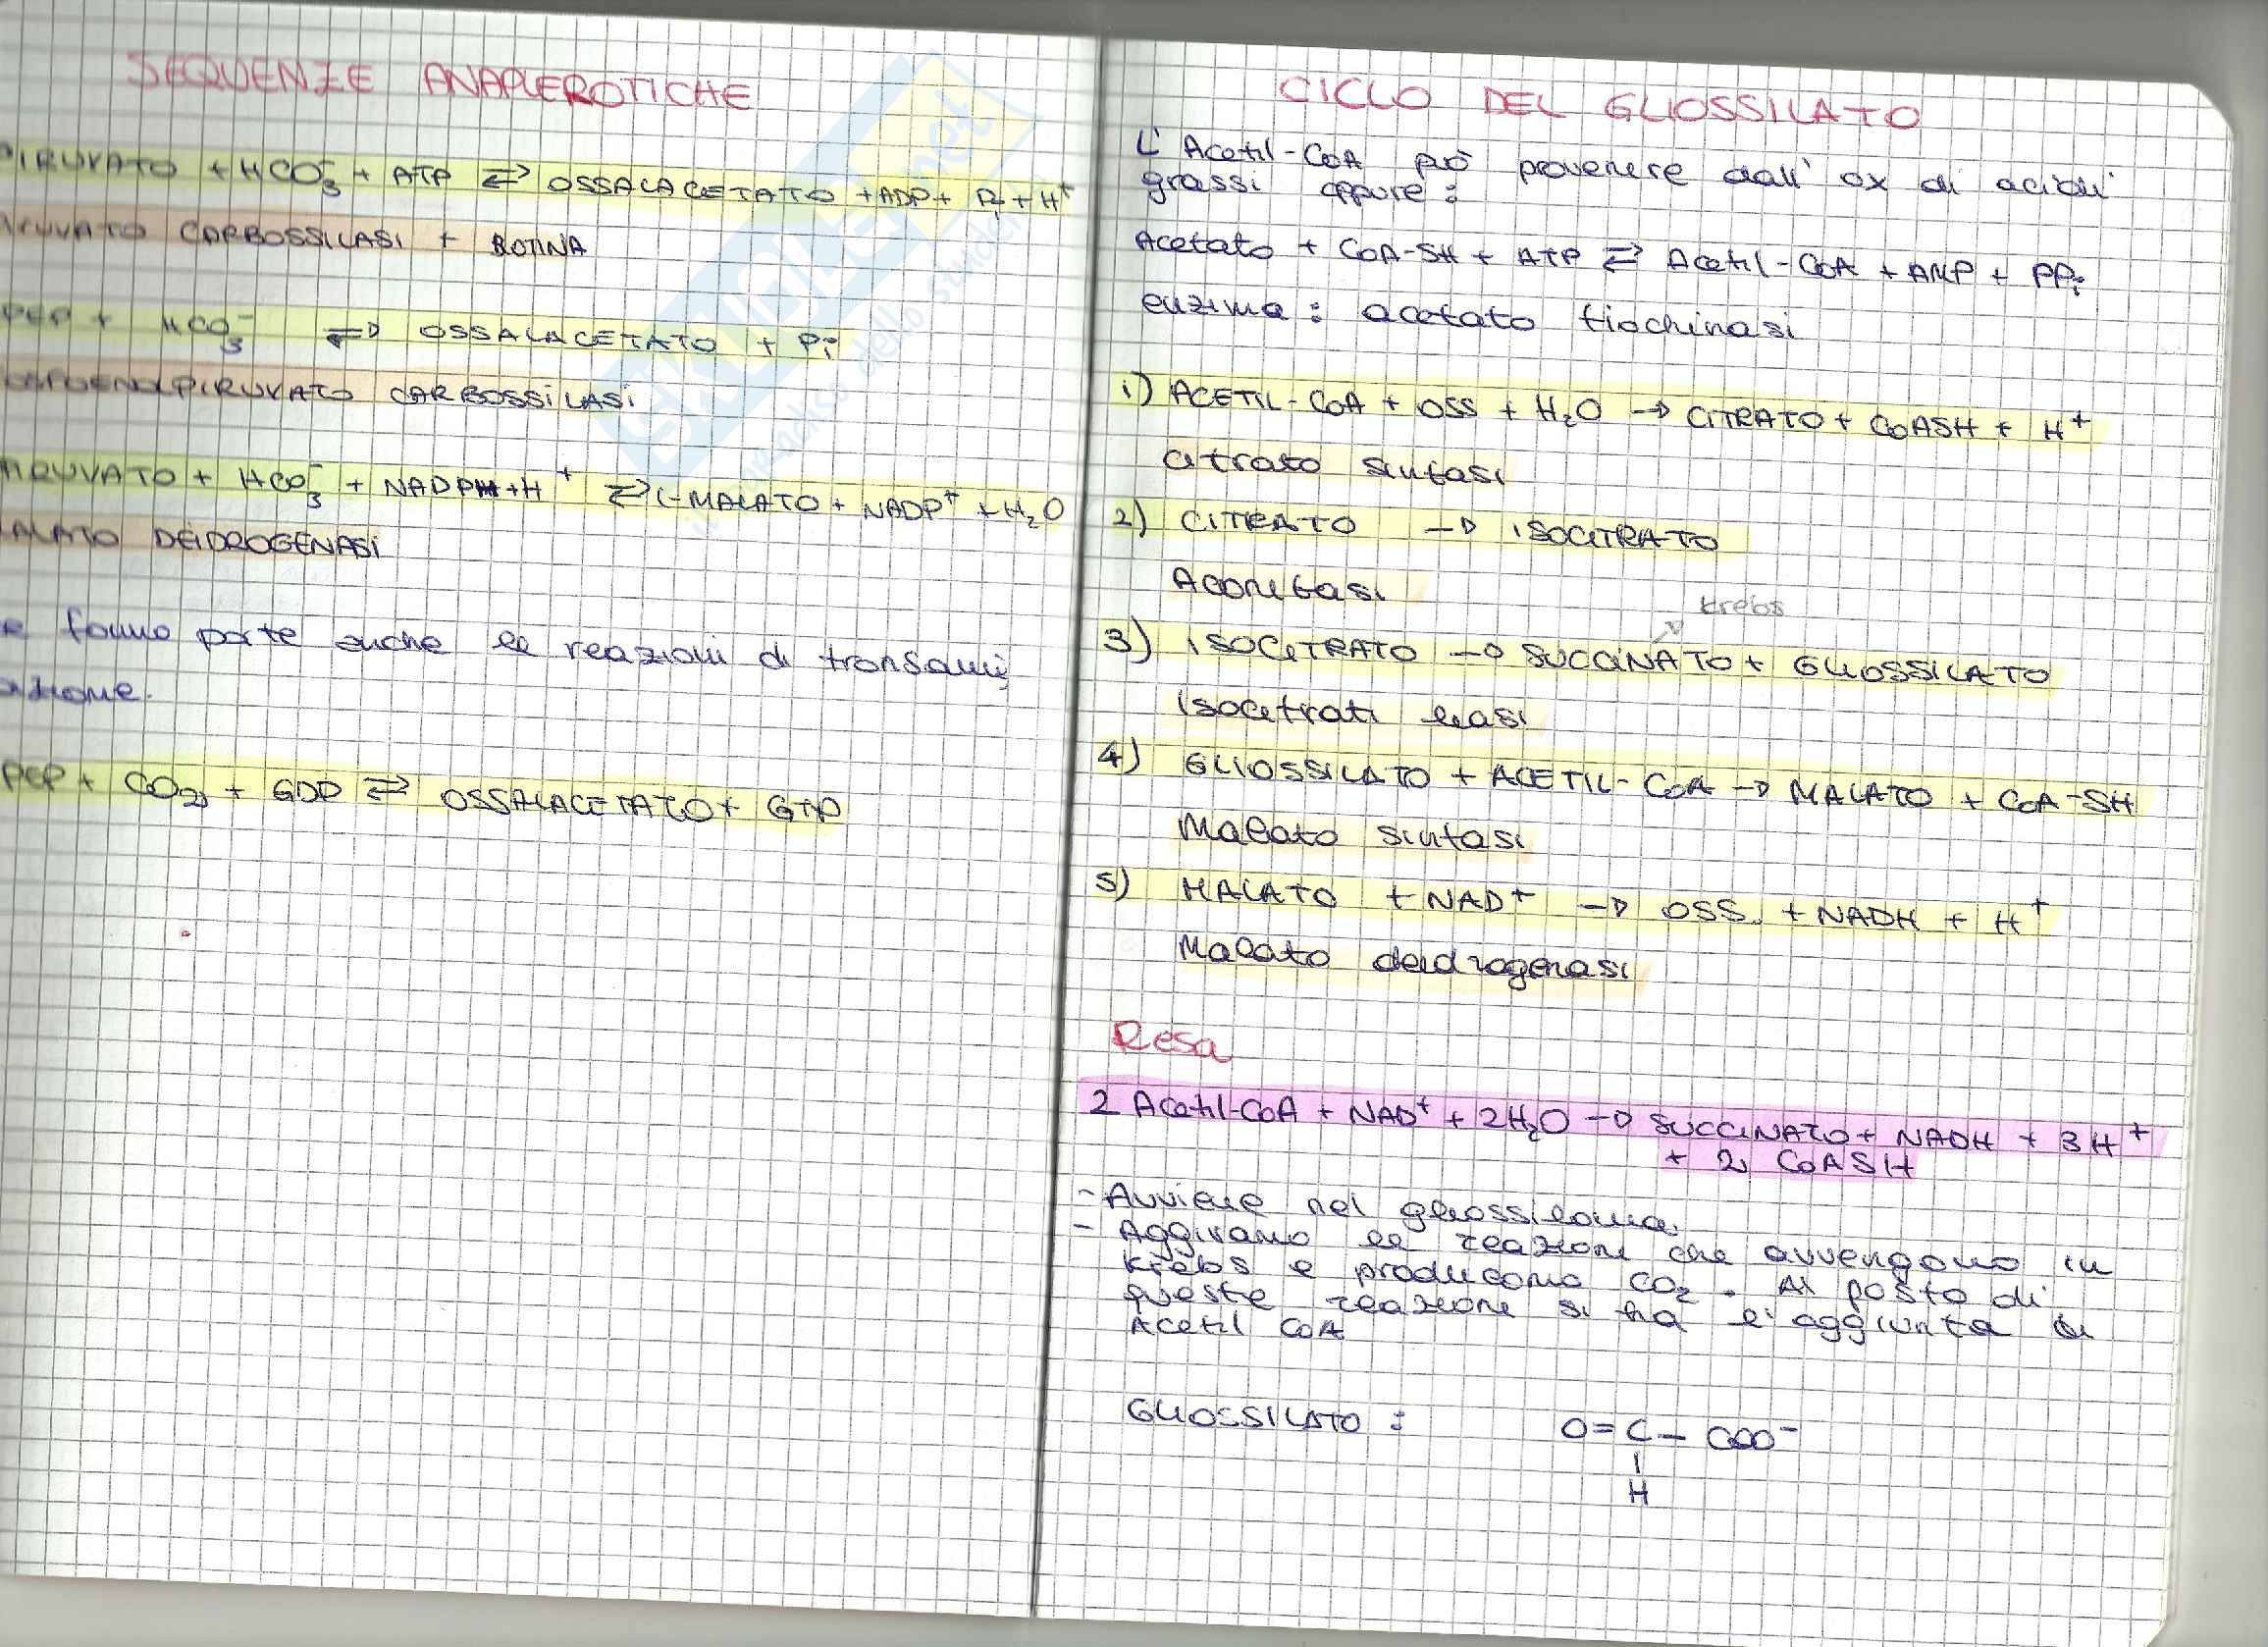 SEQUENZE ANAPLEROTICHE
PIRUVATO + HCO3- + ATP ⇄ OSSALACETATO + ADP + Pi + H+
PIRUVATO CARBOSSILASI + BIOTINA
PEP + HCO3- ⇄ OSSALACETATO + Pi
FOSFOENOLPIRUVATO CARBOSSILASI
PIRUVATO + HCO3- + NADPH + H+ ⇄ L-MALATO + NADP+ + H2O
MALATO DEIDROGENASI
e fanno parte anche le reazioni di transami
azione.
PEP + CO2 + GDP ⇄ OSSALACETATO + GTP
CICLO DEL GLIOSSILATO
L'Acetil-CoA può provenire dall'ox di acidi
grassi oppure:
Acetato + CoA-SH + ATP ⇄ Acetil-CoA + AMP + PPi
enzima: acetato tiochinasi
1) ACETIL-CoA + OSS + H2O → CITRATO + CoASH + H+
citrato sintasi
2) CITRATO → ISOCITRATO
Aconitasi
krebs
3) ISOCITRATO → SUCCINATO + GLIOSSILATO
Isocitrati liasi
4) GLIOSSILATO + ACETIL-CoA → MALATO + CoA-SH
Malato sintasi
5) MALATO + NAD+ → OSS. + NADH + H+
Malato deidrogenasi
Resa
2 Acetil-CoA + NAD+ + 2H2O → SUCCINATO + NADH + 3H+
+ 2 CoASH
- Avviene nel gliossisoma.
- Aggiriamo le reazioni che avvengono in
Krebs e producono CO2. Al posto di
queste reazioni si ha l'aggiunta di
Acetil CoA
GLIOSSILATO : O=C-COO-
H
SKUOLA.net
il paradiso dello studente